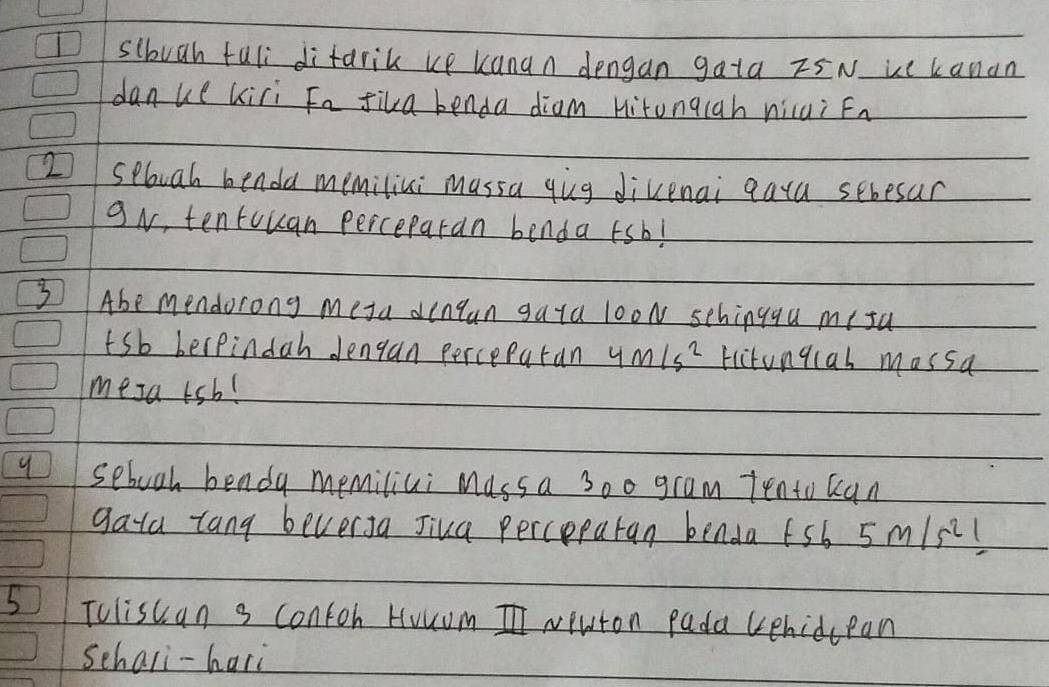 1 Sebuah tali ditarik ke kanan dengan gaya 25 N ke kanan
dan ke kiri Fn jika benda diam Hitunglah nilai Fn
2 Sebuah benda memiliki massa 4kg dikenai gaya sebesar
9 N, tentukan Percepatan benda tsb!
3 Abe mendorong meja dengan gaya 100N sehingga meja
tsb berpindah dengan percepatan 4 m/s² Hitunglah massa
meja tsb!
4 Sebuah benda memiliki massa 300 gram Tentukan
gaya yang bekerja jika percepatan benda tsb 5 m/s²!
5 Tuliskan 3 Contoh Hukum III Newton pada kehidupan
Sehari-hari